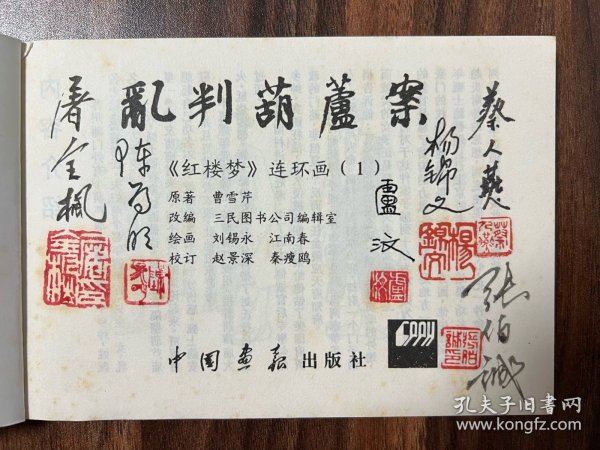 亂判葫蘆案
《红楼梦》连环画（1）
原著 曹雪芹
改编 三民图书公司编辑室
绘画 刘锡永 江南春
校订 赵景深 秦瘦鸥
中国画报出版社
屠全枫
杨锦文
卢汶
蔡人燕
张伯诚
孔夫子旧书网
www.kongfz.com